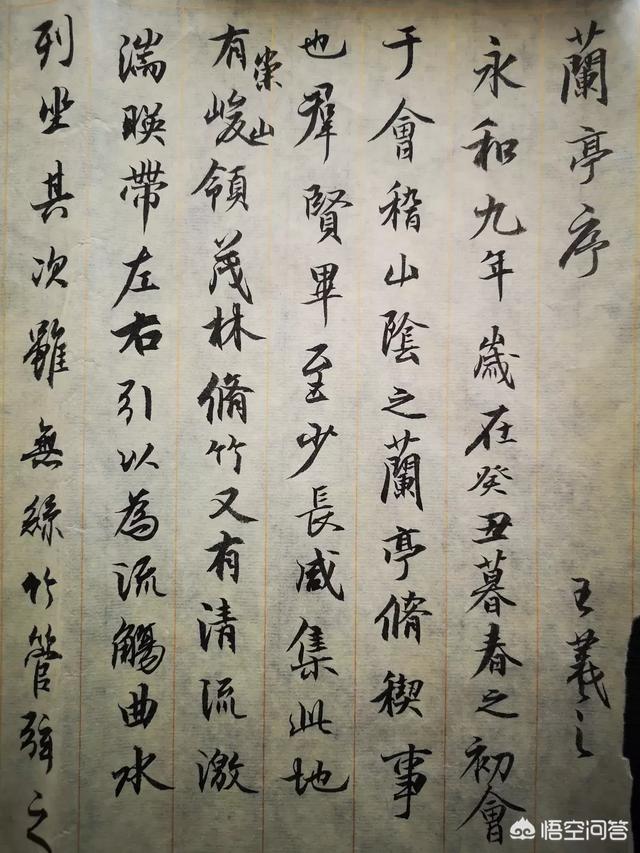 蘭亭序 王羲之
永和九年歲在癸丑暮春之初會
于會稽山陰之蘭亭脩禊事
也羣賢畢至少長咸集此地
有崇山峻領茂林脩竹又有清流激
湍暎帶左右引以為流觴曲水
列坐其次雖無絲竹管弦之
悟空问答